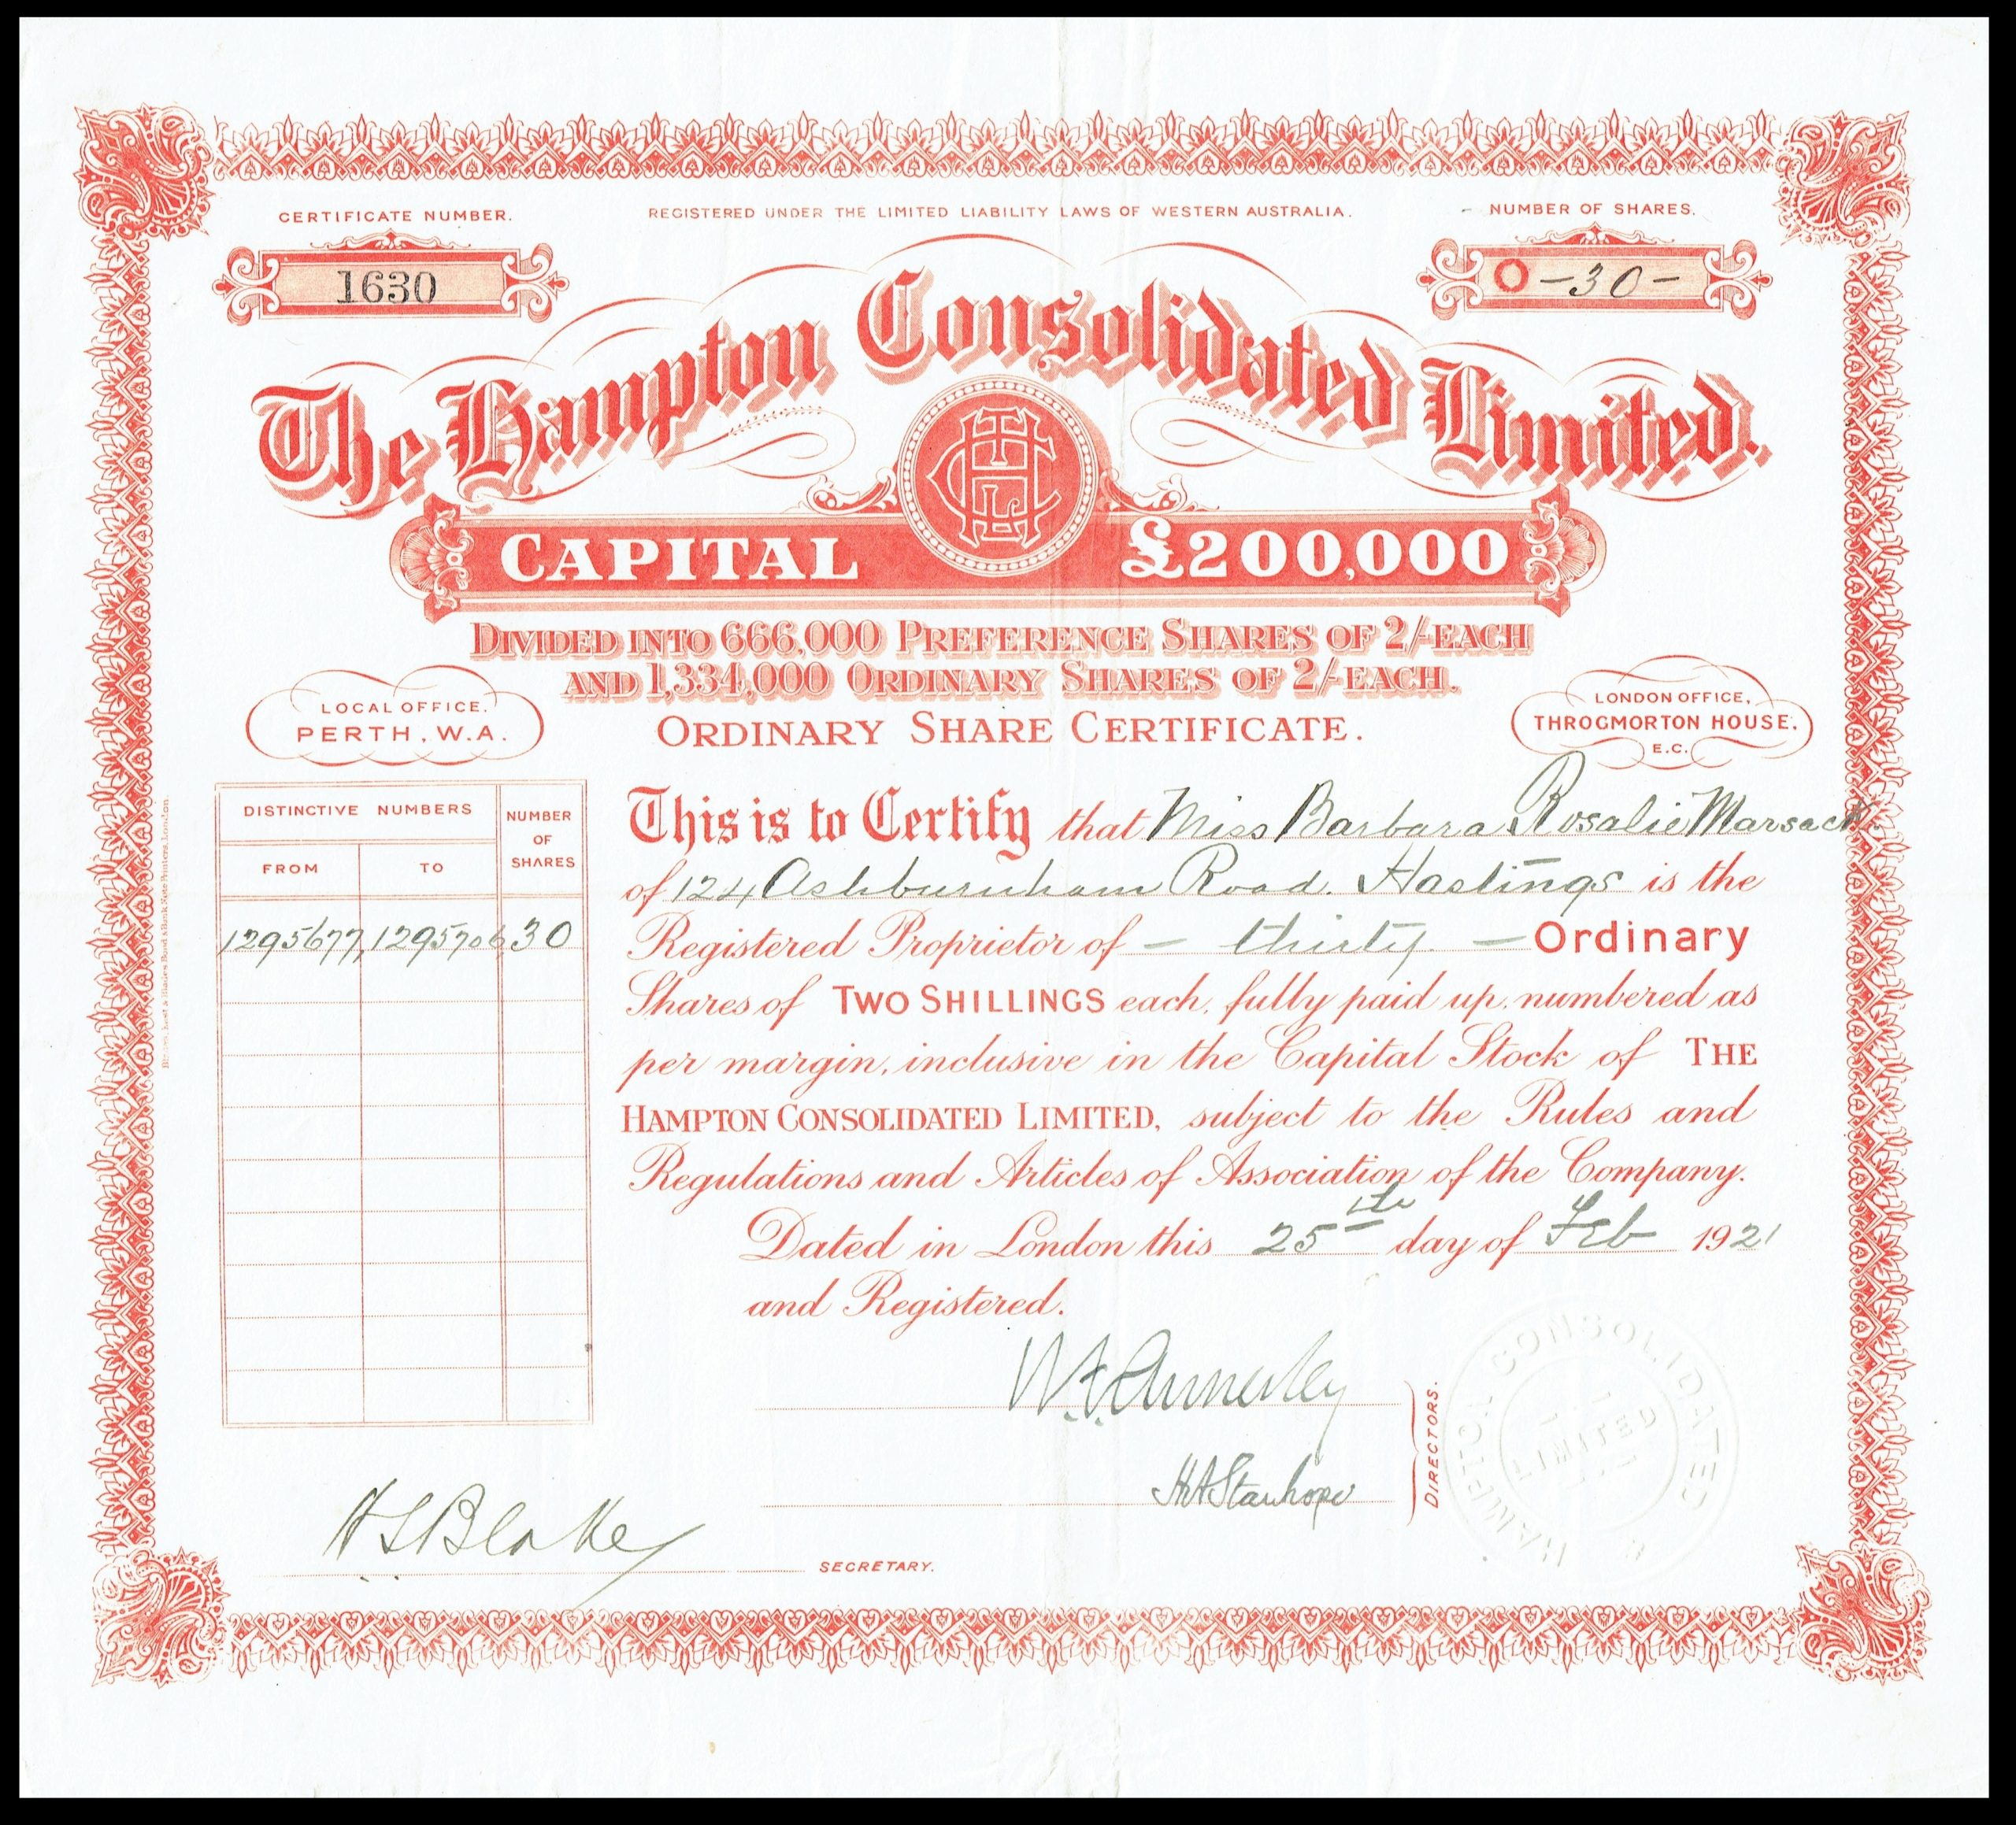 CERTIFICATE NUMBER.
REGISTERED UNDER THE LIMITED LIABILITY LAWS OF WESTERN AUSTRALIA.
NUMBER OF SHARES.
1630
O -30-
The Hampton Consolidated Limited.
CAPITAL £200,000
DIVIDED INTO 666,000 PREFERENCE SHARES OF 2/- EACH
AND 1,334,000 ORDINARY SHARES OF 2/- EACH.
LOCAL OFFICE.
PERTH, W.A.
ORDINARY SHARE CERTIFICATE.
LONDON OFFICE,
THROGMORTON HOUSE.
E.C.
DISTINCTIVE NUMBERS
NUMBER OF SHARES
FROM TO
1295677 1295706 30
This is to Certify that Miss Barbara Rosalie Marsack
of 124 Ashburnham Road. Hastings is the
Registered Proprietor of - thirty - Ordinary
Shares of TWO SHILLINGS each, fully paid up, numbered as
per margin, inclusive in the Capital Stock of THE
HAMPTON CONSOLIDATED LIMITED, subject to the Rules and
Regulations and Articles of Association of the Company.
Dated in London this 25th day of Feb 1921
and Registered.
DIRECTORS.
HAStanhope
HAMPTON CONSOLIDATED
LIMITED
H.S.Blake
SECRETARY.